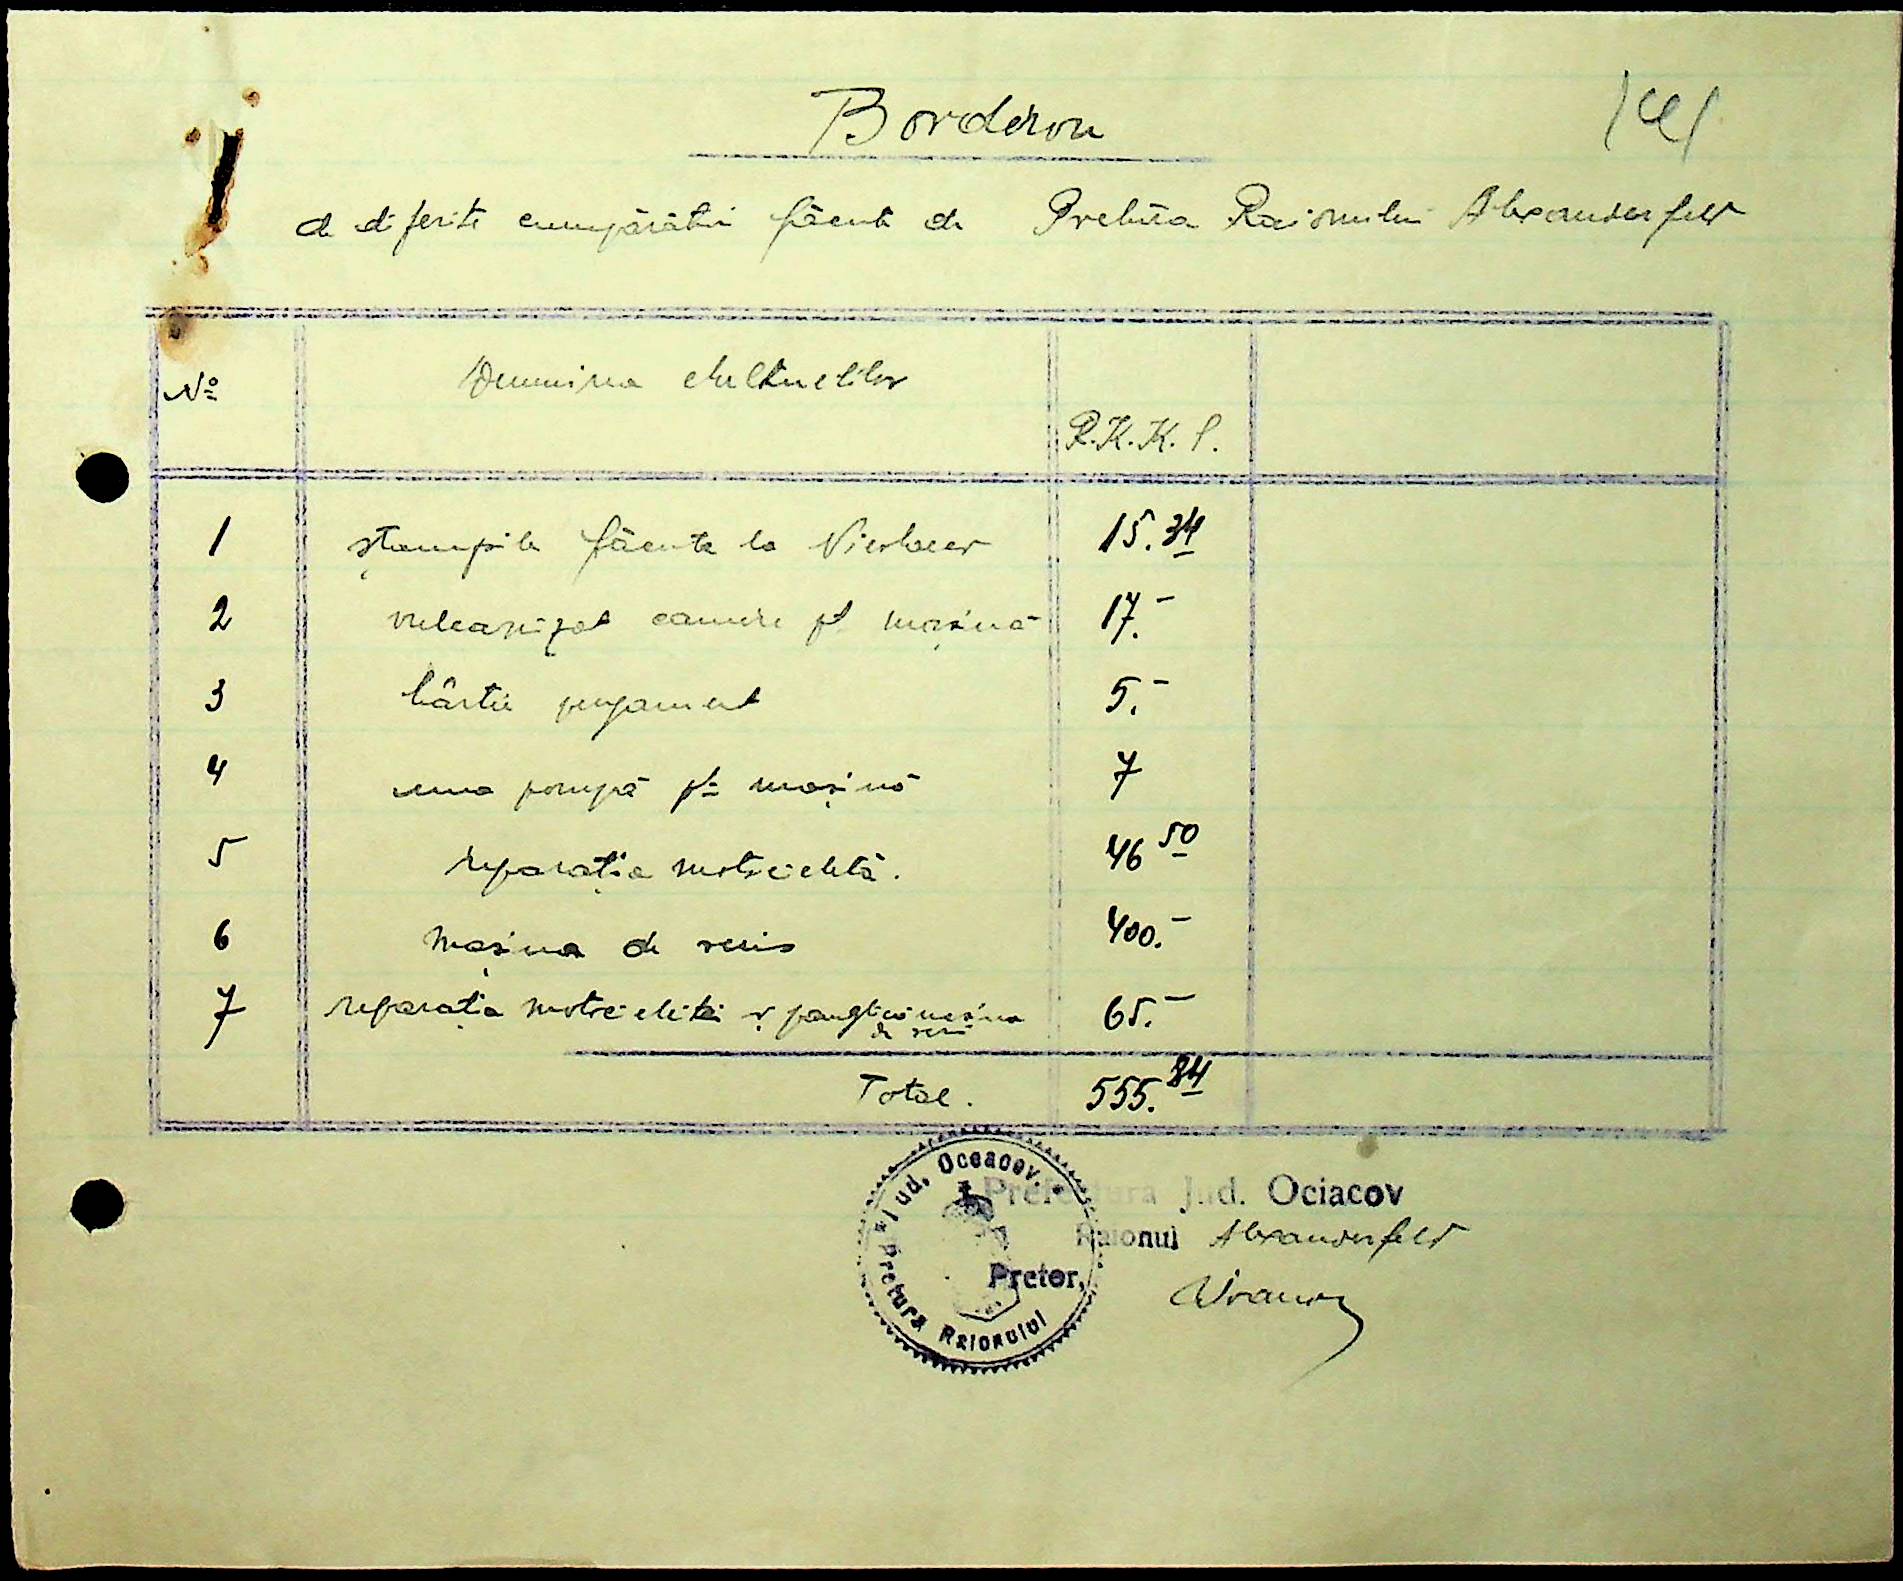 Borderou
141
de diferite cumpărături făcute de Pretura Raionului Alexanderfeld
№ Denumirea cheltuelilor R.K.K.S.
1 ștampile făcute la Nicolaev 15.34
2 vulcanizat camere pt mașină 17.-
3 hârtie pergament 5.-
4 una pompă pt mașină 7
5 reparația motocicletă. 46 50
6 mașina de scris 400.-
7 reparația motocicletei și panglică mașina 65.-
de scris
Total. 555.84
Jud. Oceacov.
Pretura Raionului
Prefectura Jud. Ociacov
Raionul Alexanderfeld
Pretor,